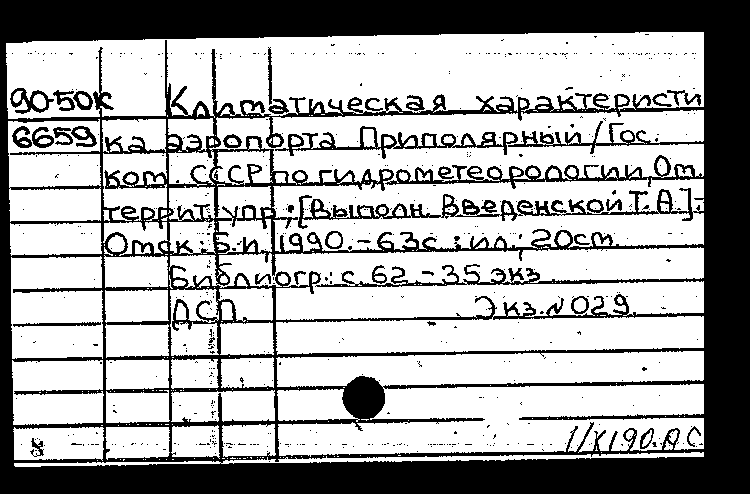 90-50к Климатическая характеристи
6659 ка аэропорта Приполярный / Гос.
ком. СССР по гидрометеорологии, Ом.
террит. упр.; [Выполн. Введенской Т. А.].-
Омск: Б.и, 1990. - 63с : ил.; 20см.
Библиогр.: с. 62. - 35 экз
ДСП. Экз. № 029.
1/X190. А С